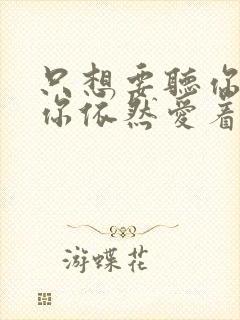 只想要聽你
你依然愛着
游蝶花